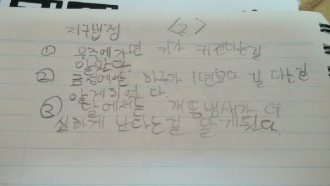 지구법정 <2>
① 우주에가면 키가 커진다는걸
알았다.
② 금성에서는 하루가 1년보다 길 다는걸
알게되었다.
③ 달에서는 개똥냄새가 더
심하게 난다는걸 알게됬다.